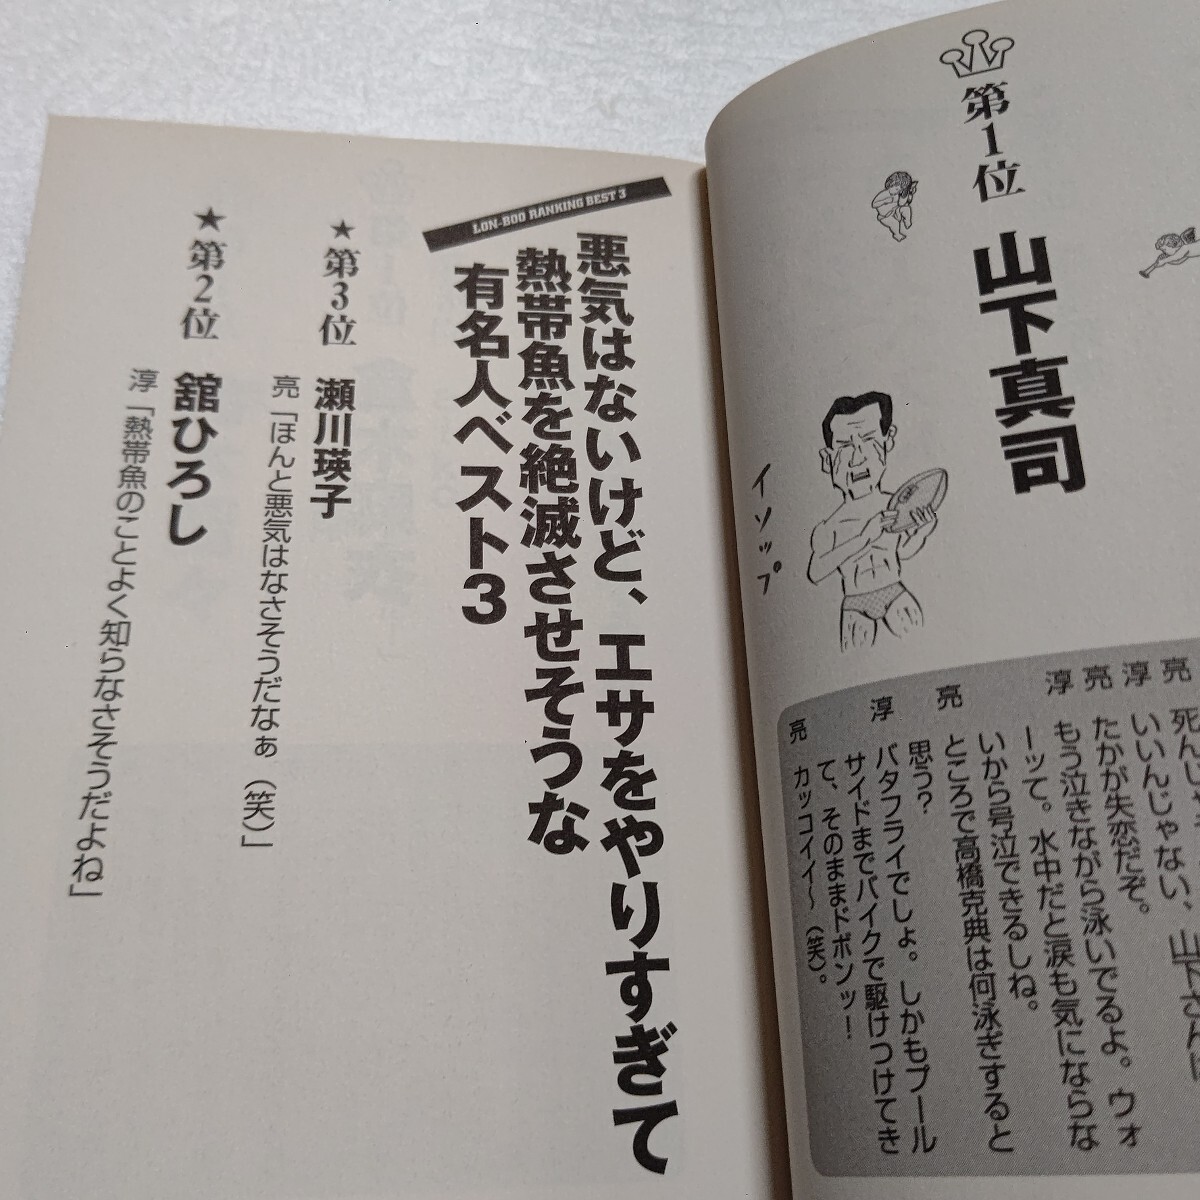 第1位 山下真司
イソップ
亮
いいんじゃない、山下さんは
淳 たかが失恋だぞ。
亮 もう泣きながら泳いでるよ。ウォ
ーッて。水中だと涙も気にならな
いから号泣できるしね。
淳 ところで高橋克典は何泳ぎすると
思う?
亮 バタフライでしょ。しかもプール
サイドまでバイクで駆けつけてき
て、そのままドボンッ!
淳
亮 カッコイイ〜(笑)。
LON-BOO RANKING BEST 3
悪気はないけど、エサをやりすぎて
熱帯魚を絶滅させそうな
有名人ベスト3
★第3位 瀬川瑛子
亮「ほんと悪気はなさそうだなぁ(笑)」
★第2位 舘ひろし
淳「熱帯魚のことよく知らなさそうだよね」